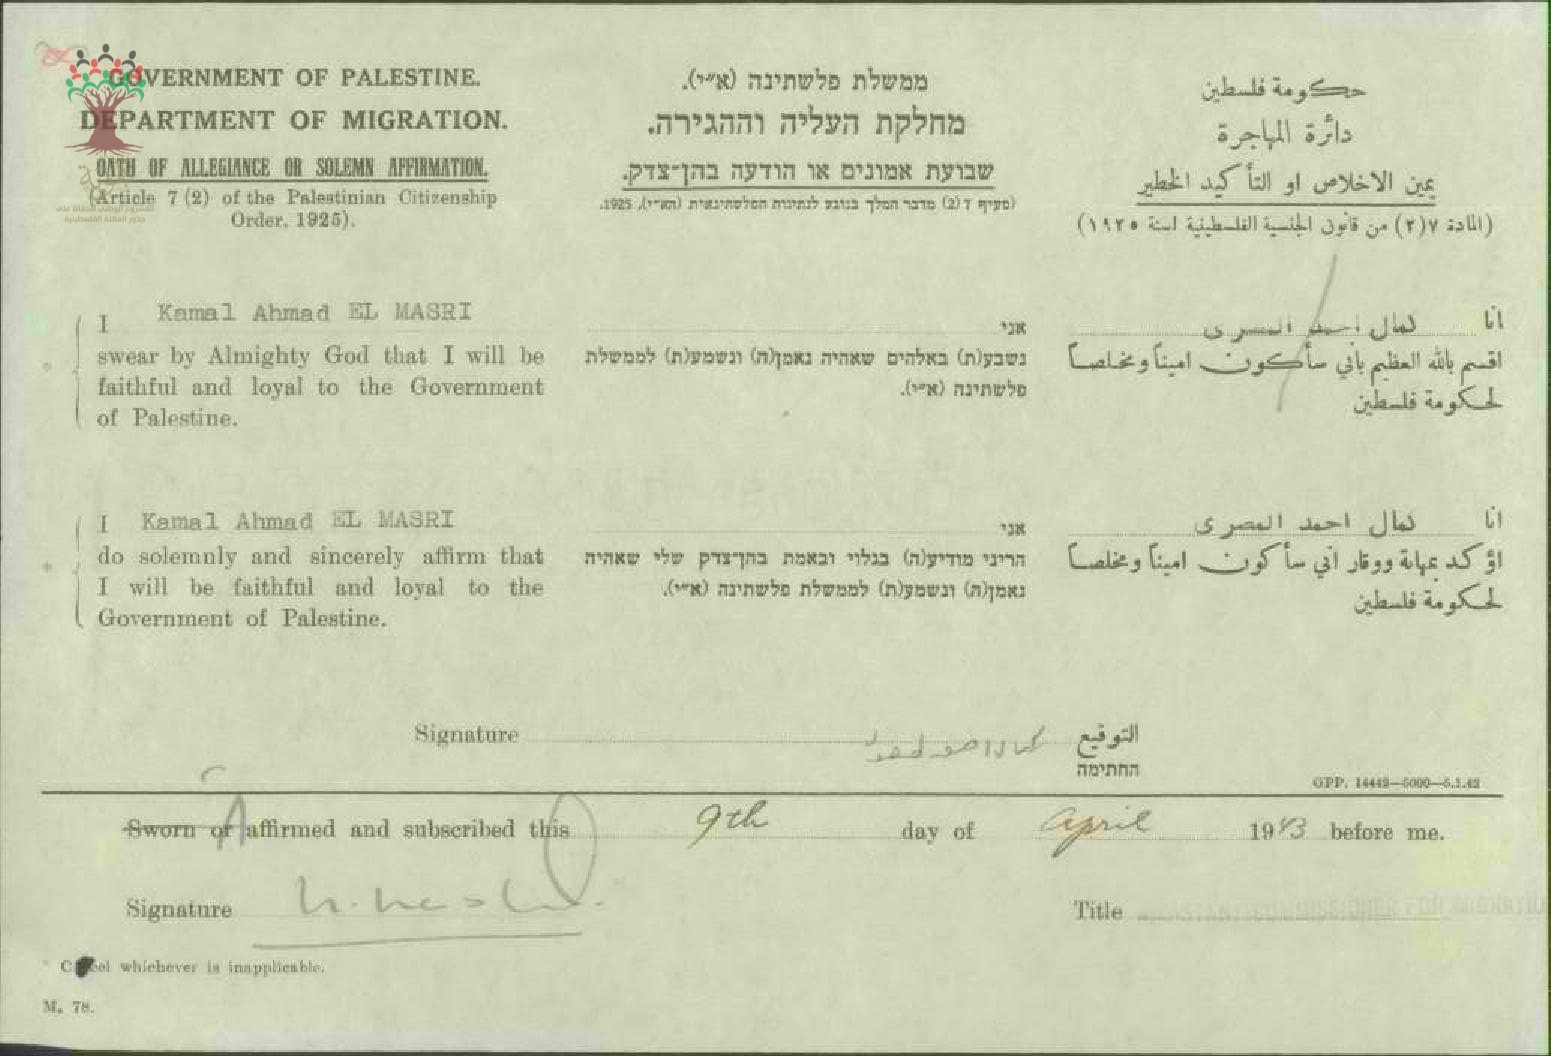 GOVERNMENT OF PALESTINE.
DEPARTMENT OF MIGRATION.
OATH OF ALLEGIANCE OR SOLEMN AFFIRMATION.
(Article 7 (2) of the Palestinian Citizenship
Order, 1925).
المشروع الوطني للحفاظ على
جذور العائلة الفلسطينية
ממשלת פלשתינה (א״י).
מחלקת העליה וההגירה.
שבועת אמונים או הודעה בהן־צדק.
(סעיף 7 (2) מדבר המלך בנוגע לנתינות הפלשתינאית (הא״י), 1925.
حكومة فلسطين
دائرة المهاجرة
يمين الاخلاص او التأكيد الخطير
(المادة ٧(٢) من قانون الجنسية الفلسطينية لسنة ١٩٢٥)
I Kamal Ahmad EL MASRI
swear by Almighty God that I will be
faithful and loyal to the Government
of Palestine.
אני
נשבע(ת) באלהים שאהיה נאמן(ה) ונשמע(ת) לממשלת
פלשתינה (א״י).
انا كمال احمد المصرى
اقسم بالله العظيم بأني سأكون اميناً ومخلصاً
لحكومة فلسطين
* I Kamal Ahmad EL MASRI
do solemnly and sincerely affirm that
I will be faithful and loyal to the
Government of Palestine.
אני
הריני מודיע(ה) בגלוי ובאמת בהן־צדק שלי שאהיה
נאמן(ה) ונשמע(ת) לממשלת פלשתינה (א״י).
انا كمال احمد المصرى
اؤكد بمهابة ووقار اني سأكون اميناً ومخلصاً
لحكومة فلسطين
Signature التوقيع
החתימה
GPP. 14442—5000—5.1.42
Sworn or affirmed and subscribed this 9th day of April 1943 before me.
Signature Title ASSISTANT COMMISSIONER FOR MIGRATIO
* Cancel whichever is inapplicable.
M. 78.